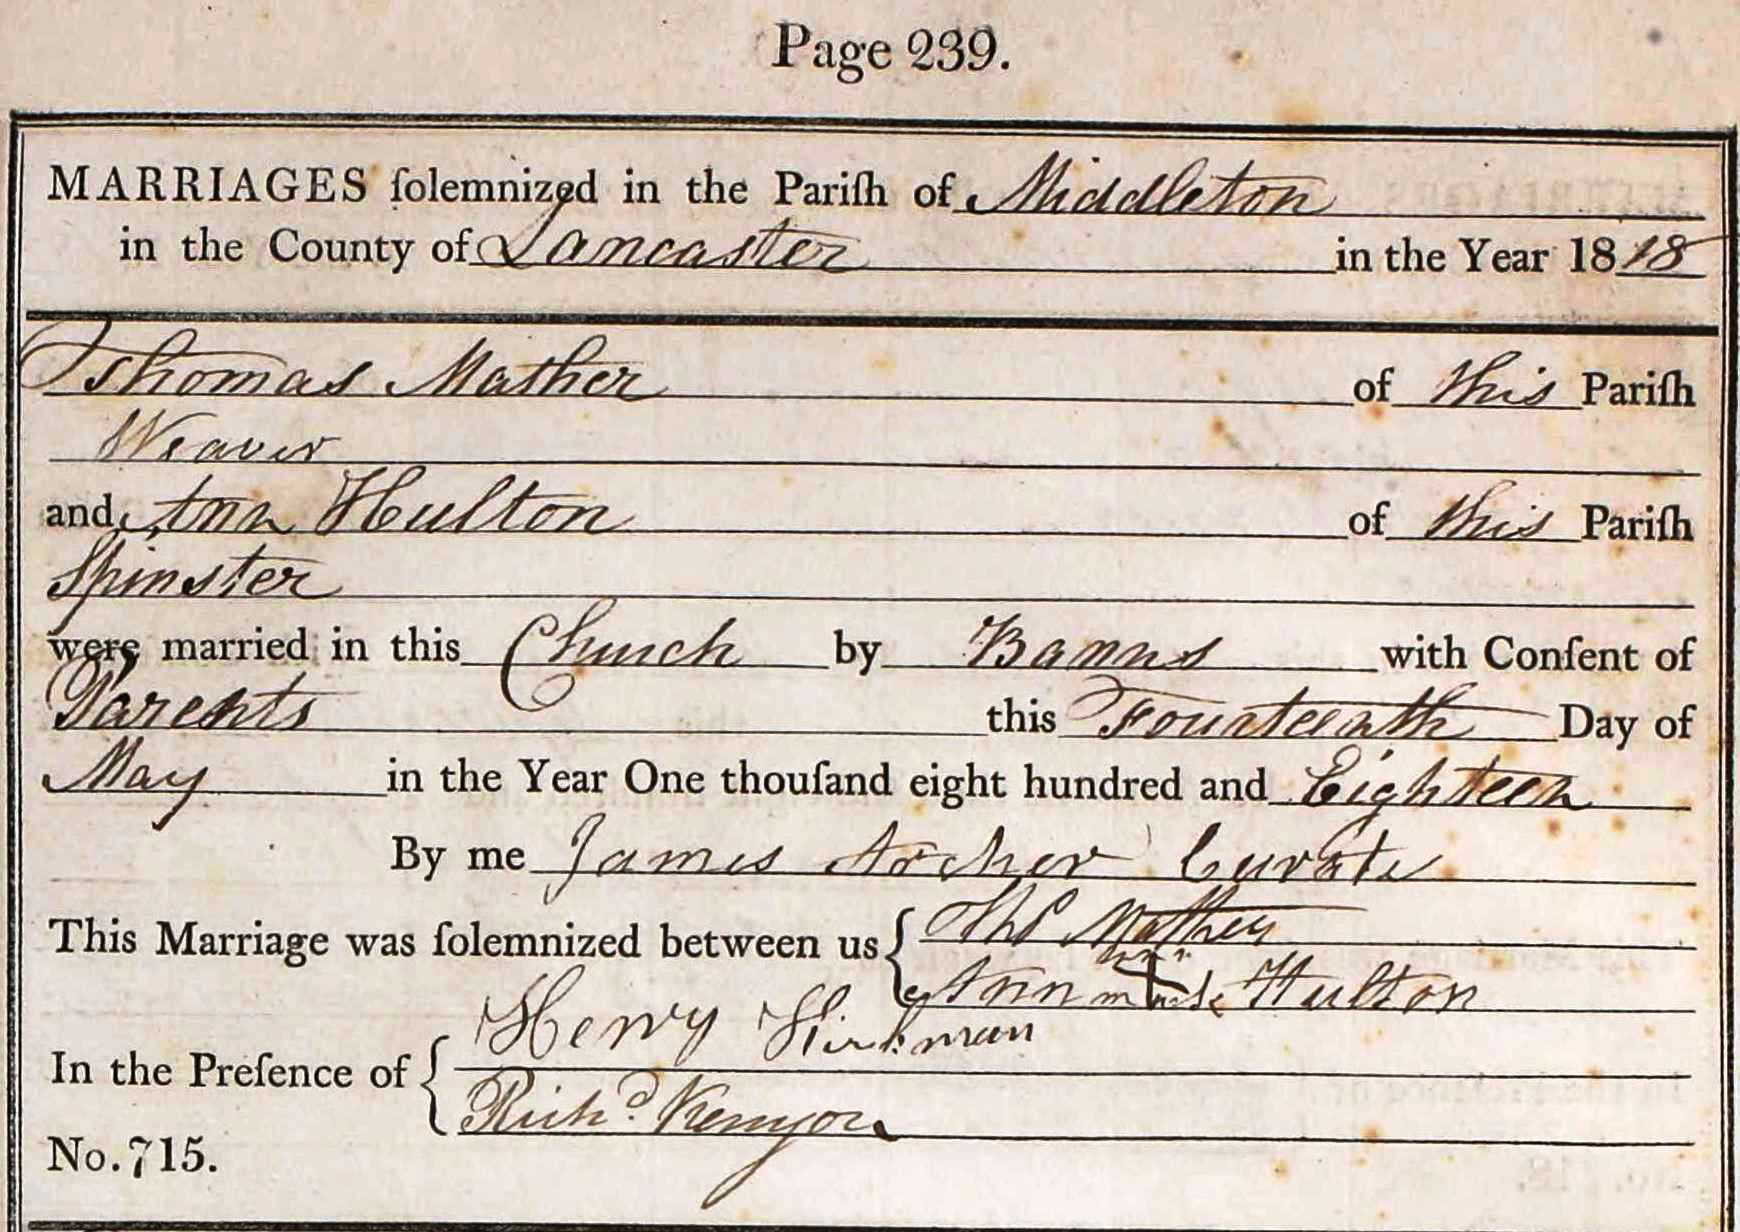 Page 239.
MARRIAGES ſolemnized in the Pariſh of Middleton
in the County of Lancaster in the Year 1818
Thomas Mather of this Pariſh
Weaver
and Ann Hulton of this Pariſh
Spinster
were married in this Church by Banns with Conſent of
Parents this Fourteenth Day of
May in the Year One thouſand eight hundred and Eighteen
By me James Archer Curate
This Marriage was ſolemnized between us { Thos Mather
her
Ann mark Hulton
In the Preſence of { Henry Kirkman
Richd. Kenyon
No. 715.